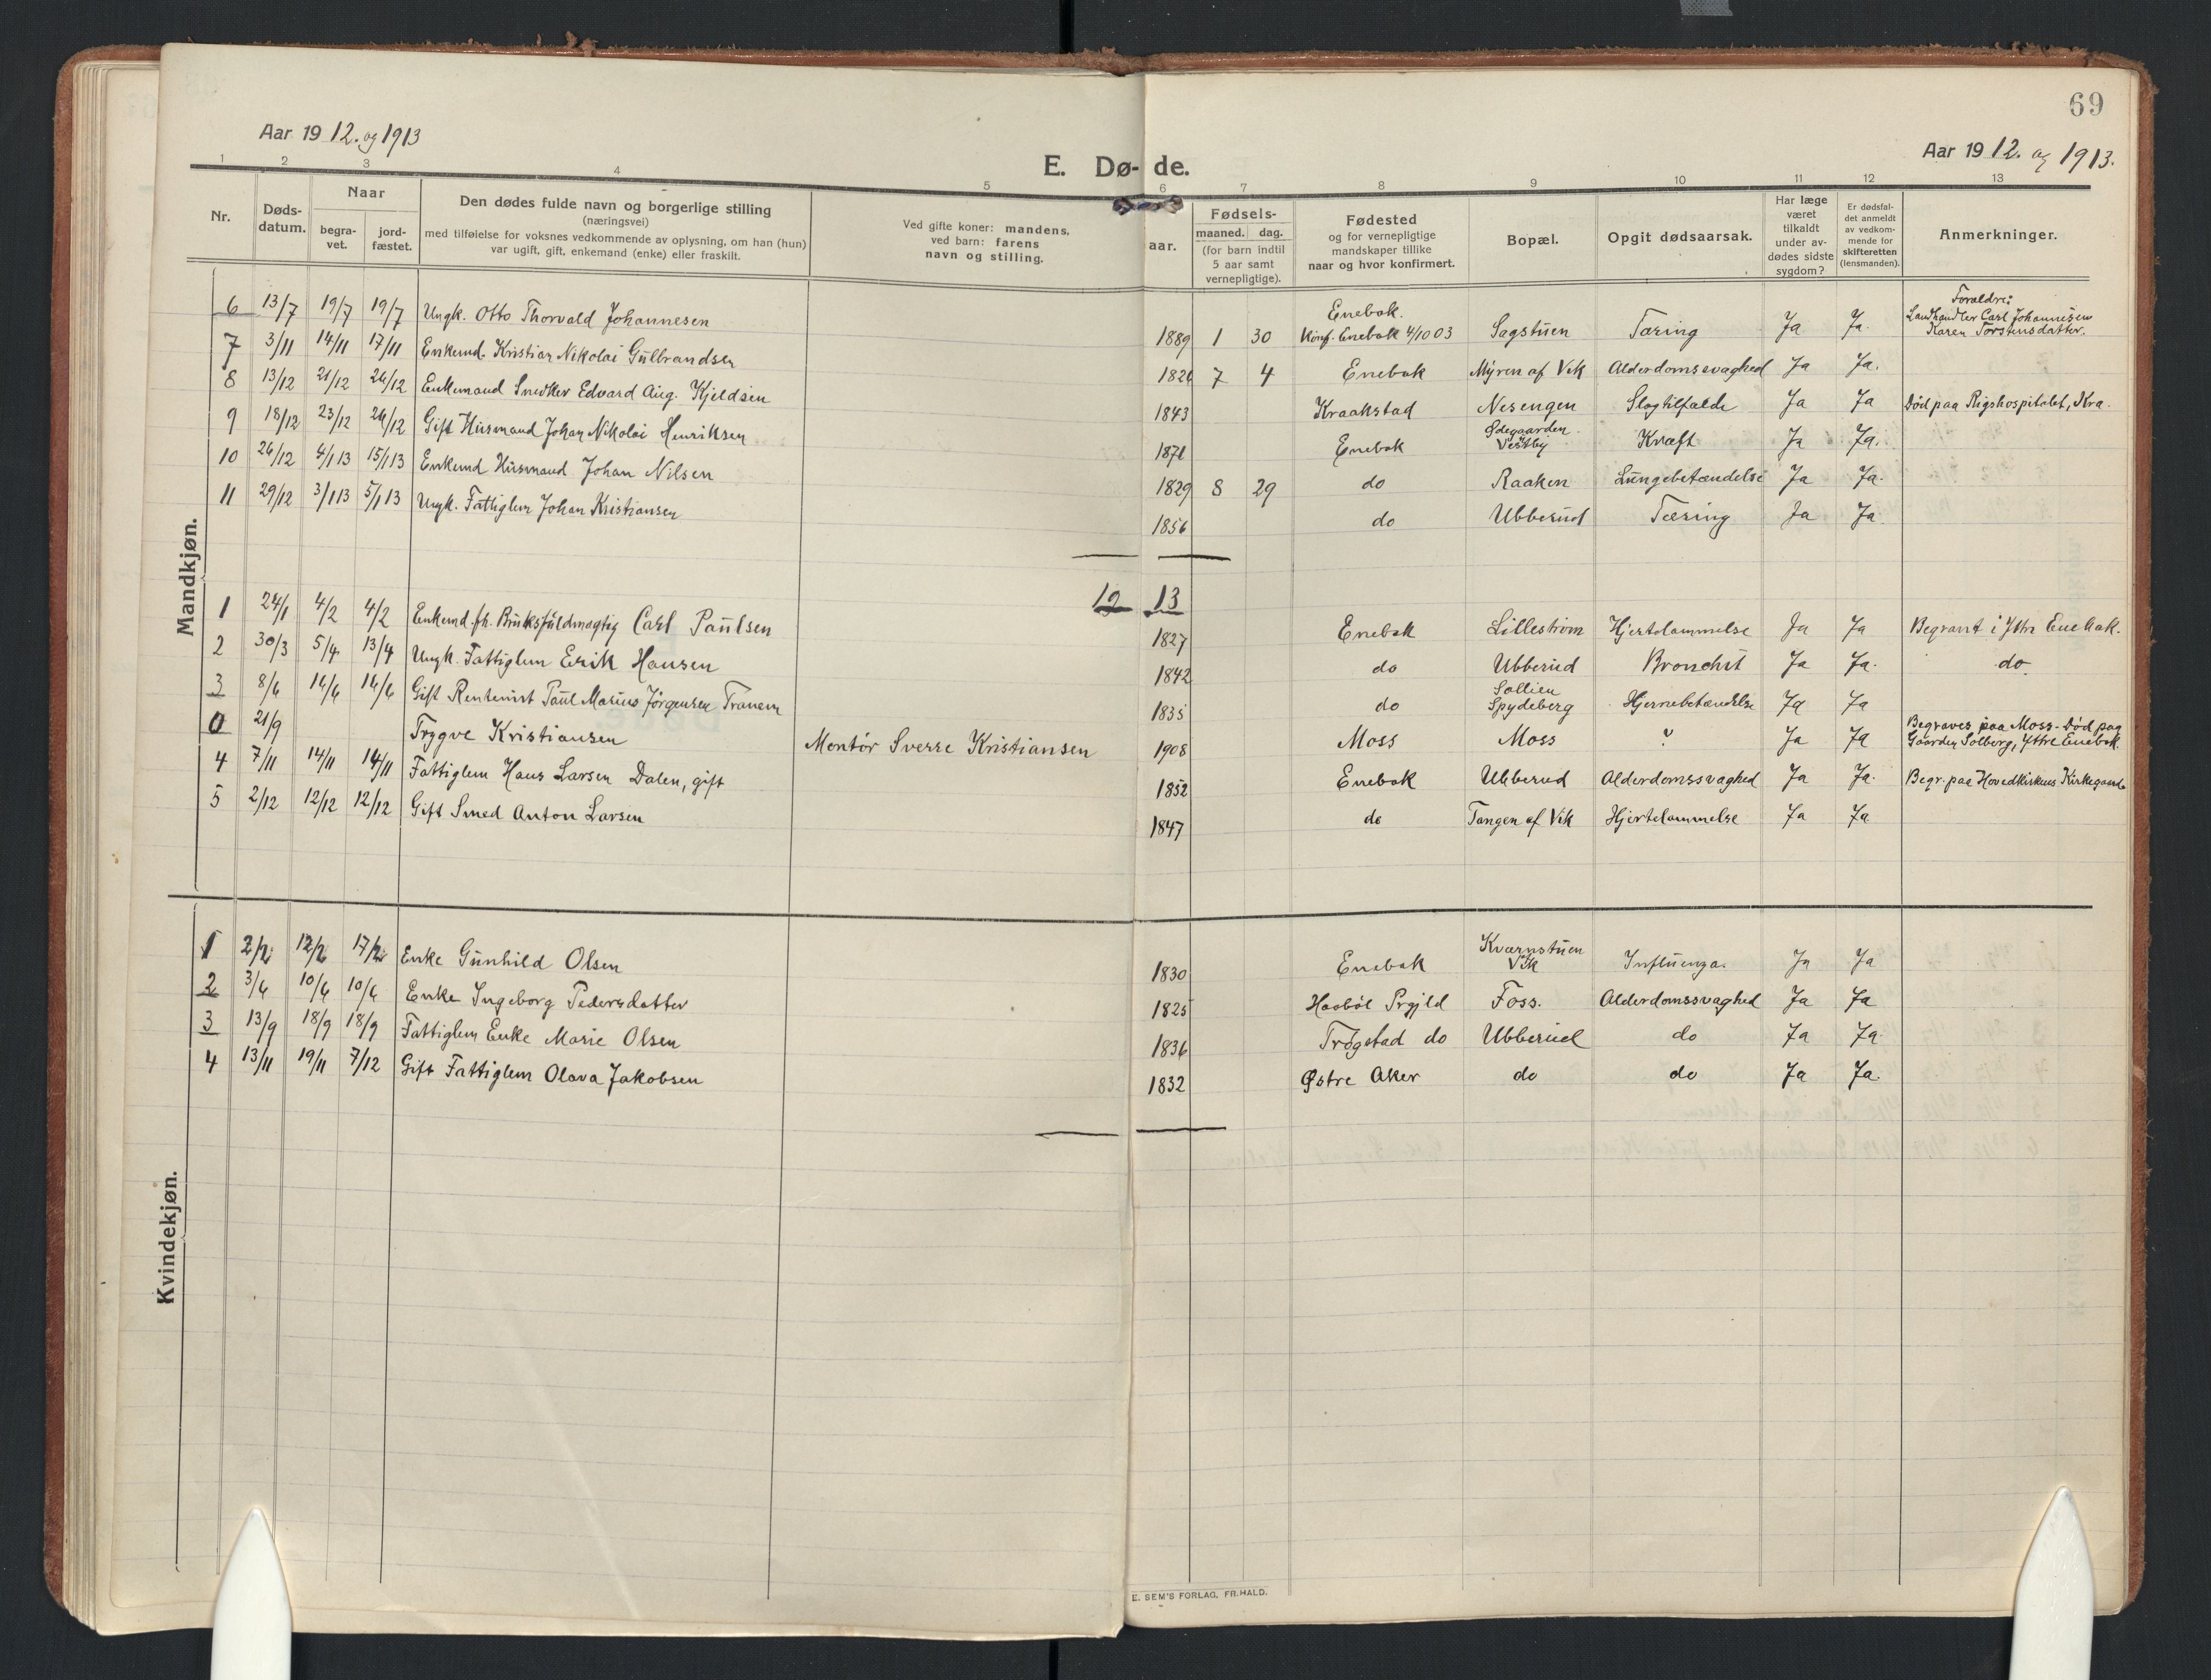 69
Aar 1912. og 1913
E. Dø- de.
Aar 1912. og 1913.
1 2 3 4 5 6 7 8 9 10 11 12 13
Nr.
Døds-
datum.
Naar
begra-
vet.
jord-
fæstet.
Den dødes fulde navn og borgerlige stilling
(næringsvei)
med tilføielse for voksnes vedkommende av oplysning, om han (hun)
var ugift, gift, enkemand (enke) eller fraskilt.
Ved gifte koner: mandens,
ved barn: farens
navn og stilling.
Fødsels-
aar. maaned. dag.
(for barn indtil
5 aar samt
vernepligtige).
Fødested
og for vernepligtige
mandskaper tillike
naar og hvor konfirmert.
Bopæl.
Opgit dødsaarsak.
Har læge
været
tilkaldt
under av-
dødes sidste
sygdom?
Er dødsfal-
det anmeldt
av vedkom-
mende for
skifteretten
(lensmanden).
Anmerkninger.
Mandkjøn.
6 13/7 19/7 19/7 Ungk. Otto Thorvald Johannesen 1889 1 30 Enebak. Konf. Enebak 4/10 03 Sagstuen Tæring Ja Ja. Forældre: Landhandler Carl Johannesen Karen Torstensdatter.
7 3/11 14/11 17/11 Enkemd. Kristian Nikolai Gulbrandsen 1826 7 4 Enebak Myren af Vik Alderdomssvaghed Ja Ja.
8 13/12 21/12 26/12 Enkemand Snedker Edvard Aug. Kjeldsen 1843 Kraakstad Nesengen Slagtilfælde Ja Ja Død paa Rigshospitalet, Kra.
9 18/12 23/12 26/12 Gift Husmand Johan Nikolai Henriksen 1871 Enebak Ødegaarden Vestby Kræft Ja Ja.
10 26/12 4/1 13 15/1 13 Enkemd Husmand Johan Nilsen 1829 8 29 do Raaken Lungebetændelse Ja Ja.
11 29/12 3/1 13 5/1 13 Ungk. Fattiglem Johan Kristiansen 1856 do Ubberud Tæring Ja Ja.
19 13
1 24/1 4/2 4/2 Enkemd. fh. Bruksfuldmægtig Carl Paulsen 1827 Enebak Lillestrøm Hjertelammelse Ja Ja Begravet i Ytre Enebak.
2 30/3 5/4 13/4 Ungk. Fattiglem Erik Hansen 1842 do Ubberud Bronchit Ja Ja. do.
3 8/6 16/6 16/6 Gift Rentenist Paul Marius Jørgensen Tranem 1835 do Sollien Spydeberg Hjernebetændelse Ja Ja
0 21/9 Trygve Kristiansen Montør Sverre Kristiansen 1908 Moss Moss ? Ja Ja Begraves paa Moss. Død paa Gaarden Solberg, Ytre Enebak.
4 7/11 14/11 14/11 Fattiglem Hans Larsen Dalen, gift 1852 Enebak Ubberud Alderdomssvaghed Ja Ja. Begr. paa Hovedkirkens Kirkegaard
5 2/12 12/12 12/12 Gift Smed Anton Larsen 1847 do Tangen af Vik Hjertelammelse Ja Ja
Kvindekjøn.
1 2/2 12/2 17/2 Enke Gunhild Olsen 1830 Enebak Kværnstuen Vik Influenza. Ja Ja
2 3/6 10/6 10/6 Enke Ingeborg Pedersdatter 1825 Haabøl Prgjld Foss. Alderdomssvaghed Ja Ja
3 13/9 18/9 18/9 Fattiglem Enke Marie Olsen 1836 Trøgstad do Ubberud do Ja Ja.
4 13/11 19/11 7/12 Gift Fattiglem Olava Jakobsen 1832 Østre Aker do do Ja Ja.
E. SEM'S FORLAG, FR.HALD.